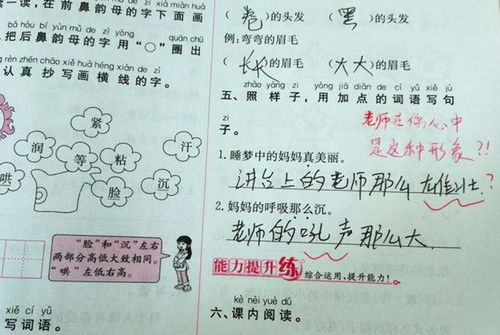 一读，在前鼻韵母的字下面画
bǎ hòu bí yùn mǔ de zì yòng quān chū
把后鼻韵母的字用“○”圈出
rèn zhēn chāo xiě huà héng xiàn de zì
认真抄写画横线的字。
紧
润
等
粘
汗
哄
脸
沉
“脸”和“沉”左右
两部分高低大致相同。
“哄”左低右高。
xiě cí yǔ
写词语。
（卷）的头发（黑）的头发
例：弯弯的眉毛
（长长）的眉毛（大大）的眉毛
zhào yàng zi yòng jiā diǎn de cí yǔ xiě jù
五、照样子，用加点的词语写句
zi
子。
老师在你心中
是这种形象?!
1.睡梦中的妈妈真美丽。
讲台上的老师那么
2.妈妈的呼吸那么沉。
老师的吼声那么大.
能力提升练 综合运用，提升能力！
kè nèi yuè dú
六、课内阅读。